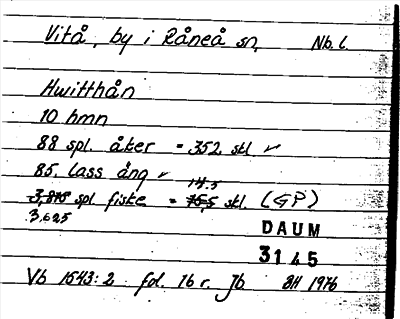 Vitå, by i Råneå sn, Nb. l.
Hwitthån
10 hmn
88 spl. åker = 352 skl ✓
85. lass äng ✓
14.5
3,875 spl fiske = 15,5 skl. (GP)
3.625
DAUM
3145
Vb 1543:2 fol. 16 r. Jb BH 1976